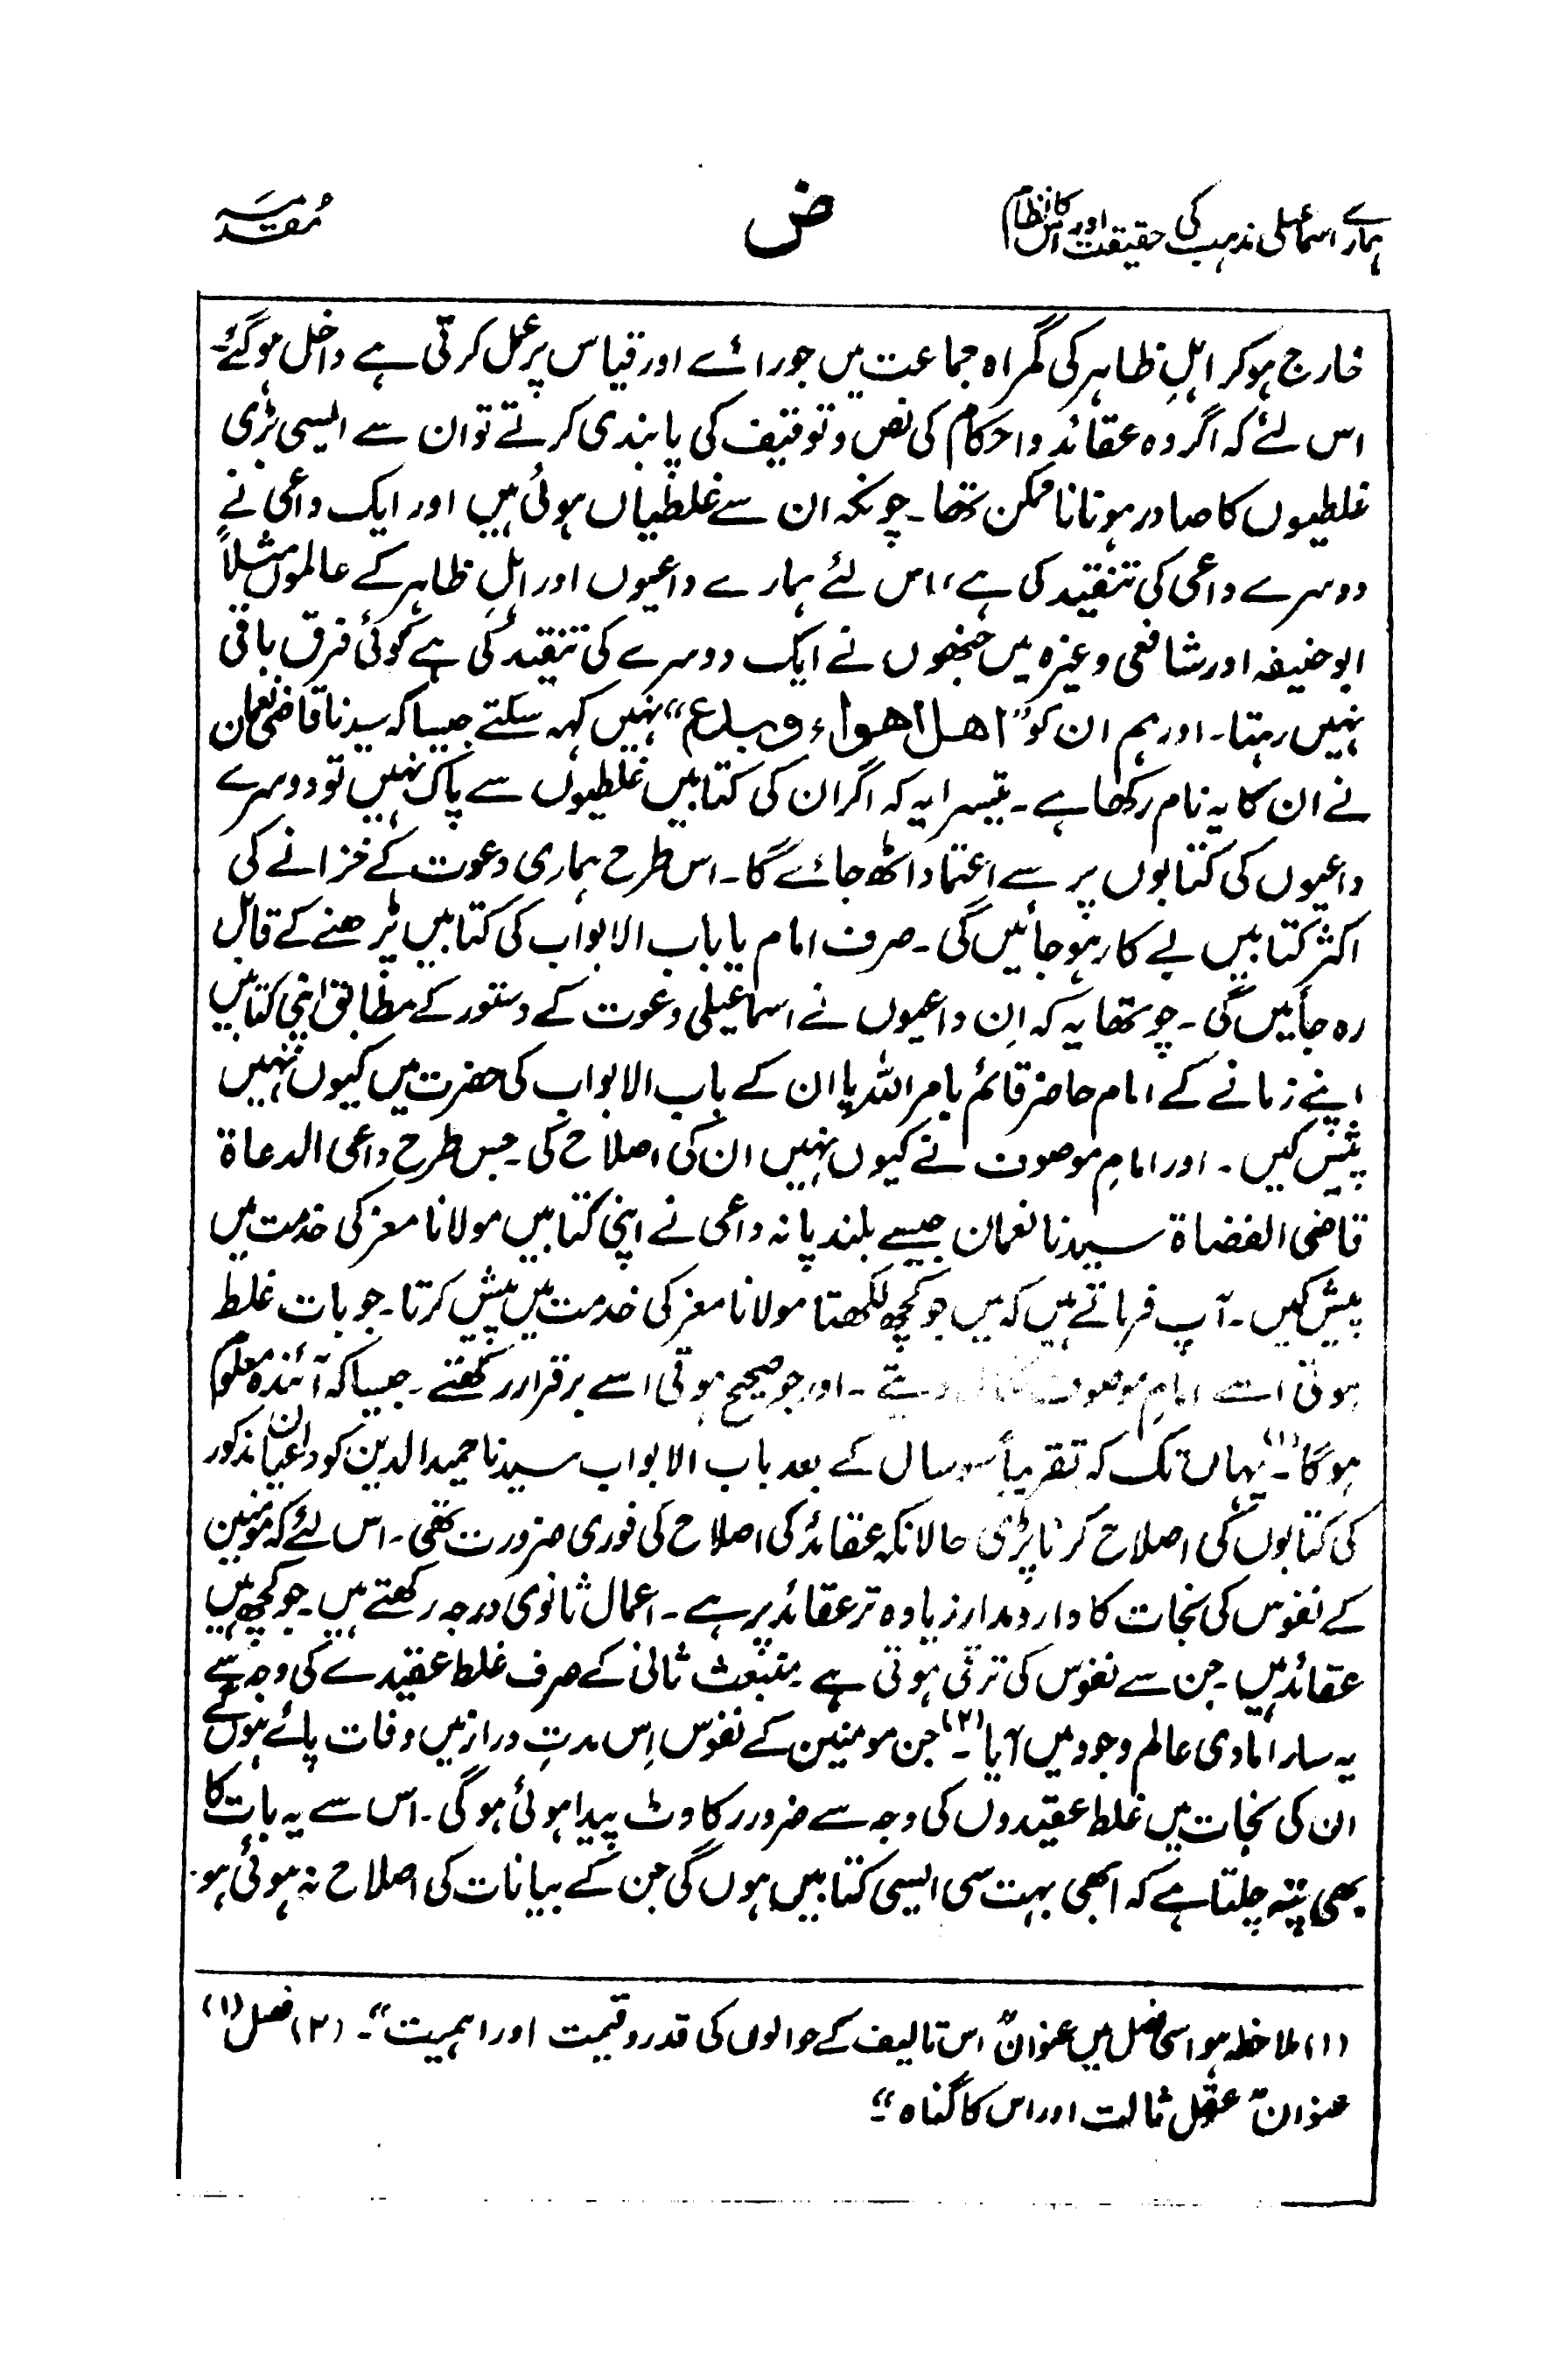 ہمارے اسماعیلی مذہب کی حقیقت اور اس کا نظام
ض
مُقدمہ
خارج ہوکر اہلِ ظاہر کی گمراہ جماعت میں جو رائے اور قیاس پر عمل کرتی ہے داخل ہوگئے۔
اس لئے کہ اگر وہ عقائد و احکام کی نص و توقیف کی پابندی کرتے تو ان سے ایسی بڑی
غلطیوں کا صادر ہونا ناممکن تھا۔ چونکہ ان سے غلطیاں ہوئی ہیں اور ایک داعی نے
دوسرے داعی کی تنقید کی ہے، اس لئے ہمارے داعیوں اور اہلِ ظاہر کے عالموں مثلاً
ابوحنیفہ اور شافعی وغیرہ میں جنھوں نے ایک دوسرے کی تنقید کی ہے کوئی فرق باقی
نہیں رہتا۔ اور ہم ان کو "اھل اھواء و بدع" نہیں کہہ سکتے جیسا کہ سیدنا قاضی نعمان
نے ان کا یہ نام رکھا ہے۔ تیسرا یہ کہ اگر ان کی کتابیں غلطیوں سے پاک نہیں تو دوسرے
داعیوں کی کتابوں پر سے اعتماد اٹھ جائے گا۔ اس طرح ہماری دعوت کے خزانے کی
اکثر کتابیں بے کار ہوجائیں گی۔ صرف امام یا باب الابواب کی کتابیں پڑھنے کے قابل
رہ جائیں گی۔ چوتھا یہ کہ اِن داعیوں نے اسماعیلی دعوت کے دستور کے مطابق اپنی کتابیں
اپنے زمانے کے امام حاضر قائم بامر اللہ یا ان کے باب الابواب کی حضرت میں کیوں نہیں
پیش کیں۔ اور امامِ موصوف نے کیوں نہیں ان کی اصلاح کی۔ جس طرح داعی الدعاۃ
قاضی القضاۃ سیدنا نعمان جیسے بلند پایہ داعی نے اپنی کتابیں مولانا معز کی خدمت میں
پیش کیں۔ آپ فرماتے ہیں کہ میں جو کچھ لکھتا مولانا معز کی خدمت میں پیش کرتا۔ جو بات غلط
ہوتی اسے امامِ موصوف نکال دیتے۔ اور جو صحیح ہوتی اسے برقرار رکھتے۔ جیسا کہ آئندہ معلوم
ہوگا(۱)۔ یہاں تک کہ تقریباً سو سال کے بعد باب الابواب سیدنا حمید الدین کو داعیانِ مذکور
کی کتابوں کی اصلاح کرنا پڑی حالانکہ عقائد کی اصلاح کی فوری ضرورت تھی۔ اس لئے کہ مومنین
کے نفوس کی نجات کا دارومدار زیادہ تر عقائد پر ہے۔ اعمال ثانوی درجہ رکھتے ہیں۔ جو کچھ ہیں
عقائد ہیں۔ جن سے نفوس کی ترقی ہوتی ہے۔ منبعث ثانی کے صرف غلط عقیدے کی وجہ سے
یہ سارا مادی عالم وجود میں آیا(۲)۔ جن مومنین کے نفوس اِس مدتِ دراز میں وفات پائے ہوں گے
ان کی نجات میں غلط عقیدوں کی وجہ سے ضرور رکاوٹ پیدا ہوئی ہوگی۔ اس سے یہ بات کا
بھی پتہ چلتا ہے کہ ابھی بہت سی ایسی کتابیں ہوں گی جن کے بیانات کی اصلاح نہ ہوئی ہو۔
(۱) ملاحظہ ہو اسی فصل میں عنوان "اس تالیف کے حوالوں کی قدر و قیمت اور اہمیت"۔ (۲) فصل (۱)
عنوان "عقل ثالث اور اس کا گناہ"۔